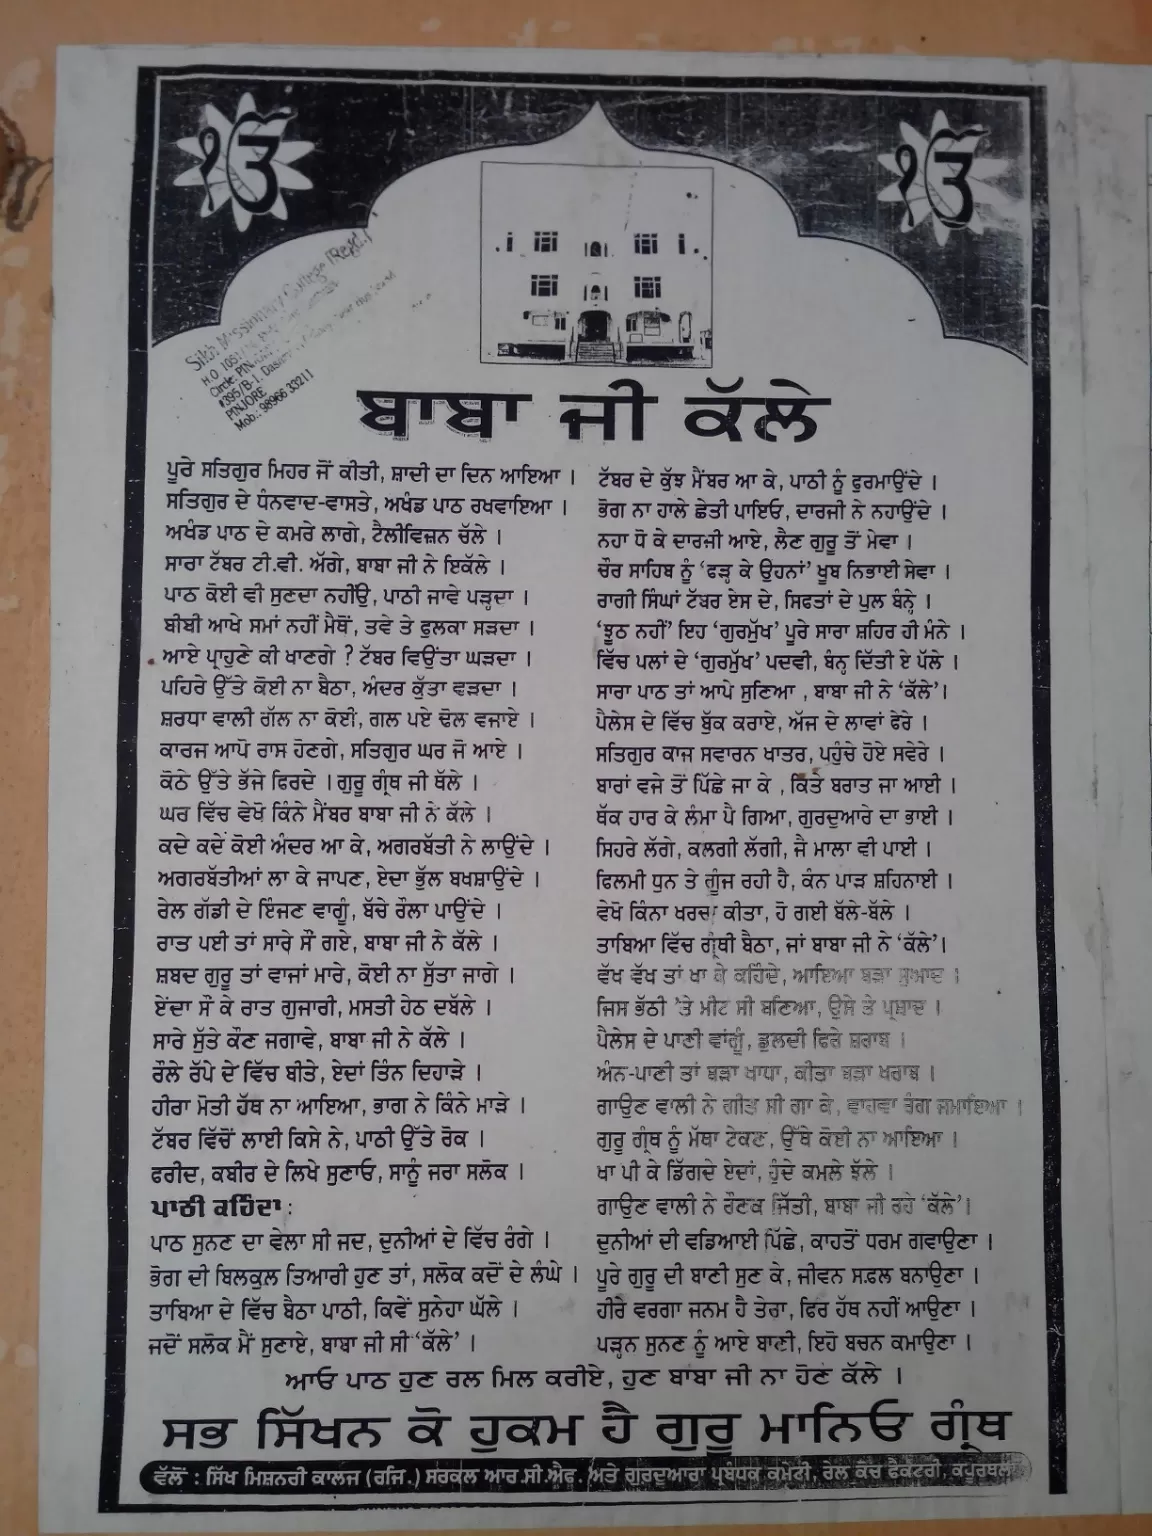 ੴ
ੴ
Sikh Missionary College (Regd.)
H.O. 105
Circle: PIN
#395/B-1,
PINJORE
Mob.: 98966 33211
ਬਾਬਾ ਜੀ ਕੱਲੇ
ਪੂਰੇ ਸਤਿਗੁਰ ਮਿਹਰ ਜੋਂ ਕੀਤੀ, ਸ਼ਾਦੀ ਦਾ ਦਿਨ ਆਇਆ ।
ਸਤਿਗੁਰ ਦੇ ਧੰਨਵਾਦ-ਵਾਸਤੇ, ਅਖੰਡ ਪਾਠ ਰਖਵਾਇਆ ।
ਅਖੰਡ ਪਾਠ ਦੇ ਕਮਰੇ ਲਾਗੇ, ਟੈਲੀਵਿਜ਼ਨ ਚੱਲੇ ।
ਸਾਰਾ ਟੱਬਰ ਟੀ.ਵੀ. ਅੱਗੇ, ਬਾਬਾ ਜੀ ਨੇ ਇਕੱਲੇ ।
ਪਾਠ ਕੋਈ ਵੀ ਸੁਣਦਾ ਨਹੀਂਉ, ਪਾਠੀ ਜਾਵੇ ਪੜ੍ਹਦਾ ।
ਬੀਬੀ ਆਖੇ ਸਮਾਂ ਨਹੀਂ ਮੈਥੋਂ, ਤਵੇ ਤੇ ਫੁਲਕਾ ਸੜਦਾ ।
ਆਏ ਪ੍ਰਾਹੁਣੇ ਕੀ ਖਾਣਗੇ ? ਟੱਬਰ ਵਿਉਂਤਾ ਘੜਦਾ ।
ਪਹਿਰੇ ਉੱਤੇ ਕੋਈ ਨਾ ਬੈਠਾ, ਅੰਦਰ ਕੁੱਤਾ ਵੜਦਾ ।
ਸ਼ਰਧਾ ਵਾਲੀ ਗੱਲ ਨਾ ਕੋਈ, ਗਲ ਪਏ ਢੋਲ ਵਜਾਏ ।
ਕਾਰਜ ਆਪੇ ਰਾਸ ਹੋਣਗੇ, ਸਤਿਗੁਰ ਘਰ ਜੋ ਆਏ ।
ਕੋਠੇ ਉੱਤੇ ਭੱਜੇ ਫਿਰਦੇ । ਗੁਰੂ ਗ੍ਰੰਥ ਜੀ ਥੱਲੇ ।
ਘਰ ਵਿੱਚ ਵੇਖੋ ਕਿੰਨੇ ਮੈਂਬਰ ਬਾਬਾ ਜੀ ਨੇ ਕੱਲੇ ।
ਕਦੇ ਕਦੇਂ ਕੋਈ ਅੰਦਰ ਆ ਕੇ, ਅਗਰਬੱਤੀ ਨੇ ਲਾਉਂਦੇ ।
ਅਗਰਬੱਤੀਆਂ ਲਾ ਕੇ ਜਾਪਣ, ਏਦਾ ਭੁੱਲ ਬਖਸ਼ਾਉਂਦੇ ।
ਰੇਲ ਗੱਡੀ ਦੇ ਇੰਜਣ ਵਾਗੂੰ, ਬੱਚੇ ਰੌਲਾ ਪਾਉਂਦੇ ।
ਰਾਤ ਪਈ ਤਾਂ ਸਾਰੇ ਸੌਂ ਗਏ, ਬਾਬਾ ਜੀ ਨੇ ਕੱਲੇ ।
ਸ਼ਬਦ ਗੁਰੂ ਤਾਂ ਵਾਜਾਂ ਮਾਰੇ, ਕੋਈ ਨਾ ਸੁੱਤਾ ਜਾਗੇ ।
ਏਂਦਾ ਸੌਂ ਕੇ ਰਾਤ ਗੁਜਾਰੀ, ਮਸਤੀ ਹੇਠ ਦਬੱਲੇ ।
ਸਾਰੇ ਸੁੱਤੇ ਕੌਣ ਜਗਾਵੇ, ਬਾਬਾ ਜੀ ਨੇ ਕੱਲੇ ।
ਰੌਲੇ ਰੱਪੇ ਦੇ ਵਿੱਚ ਬੀਤੇ, ਏਦਾਂ ਤਿੰਨ ਦਿਹਾੜੇ ।
ਹੀਰਾ ਮੋਤੀ ਹੱਥ ਨਾ ਆਇਆ, ਭਾਗ ਨੇ ਕਿੰਨੇ ਮਾੜੇ ।
ਟੱਬਰ ਵਿੱਚੋਂ ਲਾਈ ਕਿਸੇ ਨੇ, ਪਾਠੀ ਉੱਤੇ ਰੋਕ ।
ਫਰੀਦ, ਕਬੀਰ ਦੇ ਲਿਖੇ ਸੁਣਾਓ, ਸਾਨੂੰ ਜਰਾ ਸਲੋਕ ।
ਪਾਠੀ ਕਹਿੰਦਾ :
ਪਾਠ ਸੁਨਣ ਦਾ ਵੇਲਾ ਸੀ ਜਦ, ਦੁਨੀਆਂ ਦੇ ਵਿੱਚ ਰੰਗੇ ।
ਭੋਗ ਦੀ ਬਿਲਕੁਲ ਤਿਆਰੀ ਹੁਣ ਤਾਂ, ਸਲੋਕ ਕਦੋਂ ਦੇ ਲੰਘੇ ।
ਤਾਬਿਆ ਦੇ ਵਿੱਚ ਬੈਠਾ ਪਾਠੀ, ਕਿਵੇਂ ਸੁਨੇਹਾ ਘੱਲੇ ।
ਜਦੋਂ ਸਲੋਕ ਮੈਂ ਸੁਣਾਏ, ਬਾਬਾ ਜੀ ਸੀ 'ਕੱਲੇ' ।
ਟੱਬਰ ਦੇ ਕੁੱਝ ਮੈਂਬਰ ਆ ਕੇ, ਪਾਠੀ ਨੂੰ ਫੁਰਮਾਉਂਦੇ ।
ਭੋਗ ਨਾ ਹਾਲੇ ਛੇਤੀ ਪਾਇਓ, ਦਾਰਜੀ ਨੇ ਨਹਾਉਂਦੇ ।
ਨਹਾ ਧੋ ਕੇ ਦਾਰਜੀ ਆਏ, ਲੈਣ ਗੁਰੂ ਤੋਂ ਮੇਵਾ ।
ਚੌਰ ਸਾਹਿਬ ਨੂੰ 'ਫੜ੍ਹ ਕੇ ਉਹਨਾਂ' ਖੂਬ ਨਿਭਾਈ ਸੇਵਾ ।
ਰਾਗੀ ਸਿੰਘਾਂ ਟੱਬਰ ਏਸ ਦੇ, ਸਿਫਤਾਂ ਦੇ ਪੁਲ ਬੰਨ੍ਹੇ ।
'ਝੂਠ ਨਹੀਂ' ਇਹ 'ਗੁਰਮੁੱਖ' ਪੂਰੇ ਸਾਰਾ ਸ਼ਹਿਰ ਹੀ ਮੰਨੇ ।
ਵਿੱਚ ਪਲਾਂ ਦੇ 'ਗੁਰਮੁੱਖ' ਪਦਵੀ, ਬੰਨ੍ਹ ਦਿੱਤੀ ਏ ਪੱਲੇ ।
ਸਾਰਾ ਪਾਠ ਤਾਂ ਆਪੇ ਸੁਣਿਆ , ਬਾਬਾ ਜੀ ਨੇ 'ਕੱਲੇ'।
ਪੈਲੇਸ ਦੇ ਵਿੱਚ ਬੁੱਕ ਕਰਾਏ, ਅੱਜ ਦੇ ਲਾਵਾਂ ਫੇਰੇ ।
ਸਤਿਗੁਰ ਕਾਜ ਸਵਾਰਨ ਖਾਤਰ, ਪਹੁੰਚੇ ਹੋਏ ਸਵੇਰੇ ।
ਬਾਰਾਂ ਵਜੇ ਤੋਂ ਪਿੱਛੇ ਜਾ ਕੇ , ਕਿਤੇ ਬਰਾਤ ਜਾ ਆਈ ।
ਥੱਕ ਹਾਰ ਕੇ ਲੰਮਾ ਪੈ ਗਿਆ, ਗੁਰਦੁਆਰੇ ਦਾ ਭਾਈ ।
ਸਿਹਰੇ ਲੱਗੇ, ਕਲਗੀ ਲੱਗੀ, ਜੈ ਮਾਲਾ ਵੀ ਪਾਈ ।
ਫਿਲਮੀ ਧੁਨ ਤੇ ਗੂੰਜ ਰਹੀ ਹੈ, ਕੰਨ ਪਾੜ ਸ਼ਹਿਨਾਈ ।
ਵੇਖੋ ਕਿੰਨਾ ਖਰਚਾ ਕੀਤਾ, ਹੋ ਗਈ ਬੱਲੇ-ਬੱਲੇ ।
ਤਾਬਿਆ ਵਿੱਚ ਗ੍ਰੰਥੀ ਬੈਠਾ, ਜਾਂ ਬਾਬਾ ਜੀ ਨੇ 'ਕੱਲੇ'।
ਵੱਖ ਵੱਖ ਤਾਂ ਖਾ ਕੇ ਕਹਿੰਦੇ, ਆਇਆ ਬੜਾ ਸੁਆਦ ।
ਜਿਸ ਭੱਠੀ 'ਤੇ ਮੀਟ ਸੀ ਬਣਿਆ, ਉਸੇ ਤੇ ਪ੍ਰਸ਼ਾਦ ।
ਪੈਲੇਸ ਦੇ ਪਾਣੀ ਵਾਂਗੂੰ, ਡੁਲਦੀ ਫਿਰੇ ਸ਼ਰਾਬ ।
ਅੰਨ-ਪਾਣੀ ਤਾਂ ਬੜਾ ਖਾਧਾ, ਕੀਤਾ ਬੜਾ ਖਰਾਬ ।
ਗਾਉਣ ਵਾਲੀ ਨੇ ਗੀਤ ਸੀ ਗਾ ਕੇ, ਵਾਹਵਾ ਰੰਗ ਜਮਾਇਆ ।
ਗੁਰੂ ਗ੍ਰੰਥ ਨੂੰ ਮੱਥਾ ਟੇਕਣ, ਉੱਥੇ ਕੋਈ ਨਾ ਆਇਆ ।
ਖਾ ਪੀ ਕੇ ਡਿੱਗਦੇ ਏਦਾਂ, ਹੁੰਦੇ ਕਮਲੇ ਝੱਲੇ ।
ਗਾਉਣ ਵਾਲੀ ਨੇ ਰੌਣਕ ਜਿੱਤੀ, ਬਾਬਾ ਜੀ ਰਹੇ 'ਕੱਲੇ'।
ਦੁਨੀਆਂ ਦੀ ਵਡਿਆਈ ਪਿੱਛੇ, ਕਾਹਤੋਂ ਧਰਮ ਗਵਾਉਣਾ ।
ਪੂਰੇ ਗੁਰੂ ਦੀ ਬਾਣੀ ਸੁਣ ਕੇ, ਜੀਵਨ ਸਫਲ ਬਨਾਉਣਾ ।
ਹੀਰੇ ਵਰਗਾ ਜਨਮ ਹੈ ਤੇਰਾ, ਫਿਰ ਹੱਥ ਨਹੀਂ ਆਉਣਾ ।
ਪੜ੍ਹਨ ਸੁਨਣ ਨੂੰ ਆਏ ਬਾਣੀ, ਇਹੋ ਬਚਨ ਕਮਾਉਣਾ ।
ਆਓ ਪਾਠ ਹੁਣ ਰਲ ਮਿਲ ਕਰੀਏ, ਹੁਣ ਬਾਬਾ ਜੀ ਨਾ ਹੋਣ ਕੱਲੇ ।
ਸਭ ਸਿੱਖਨ ਕੋ ਹੁਕਮ ਹੈ ਗੁਰੂ ਮਾਨਿਓ ਗ੍ਰੰਥ
ਵੱਲੋਂ : ਸਿੱਖ ਮਿਸ਼ਨਰੀ ਕਾਲਜ (ਰਜਿ.) ਸਰਕਲ ਆਰ.ਸੀ.ਐਫ. ਅਤੇ ਗੁਰਦੁਆਰਾ ਪ੍ਰਬੰਧਕ ਕਮੇਟੀ, ਰੇਲ ਕੋਚ ਫੈਕਟਰੀ, ਕਪੂਰਥਲਾ